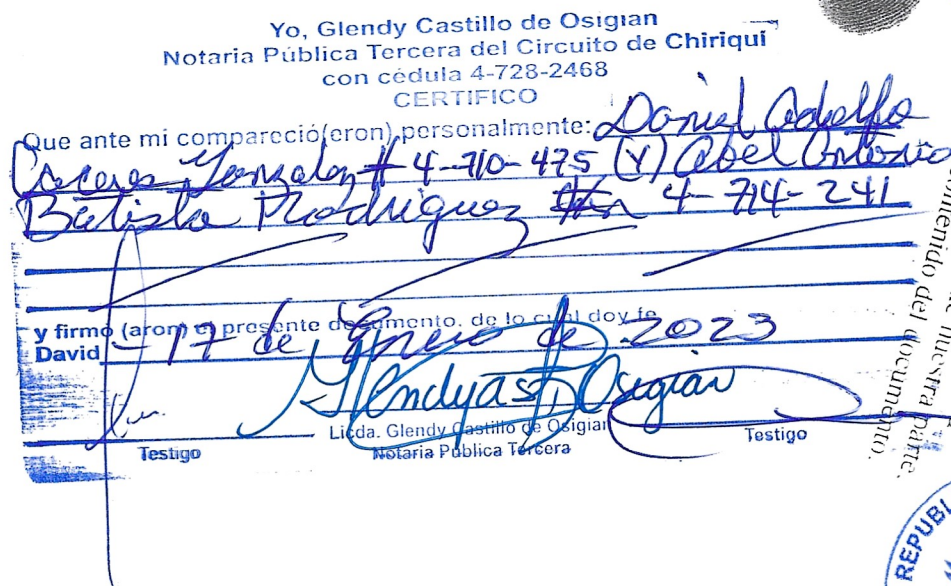 Yo, Glendy Castillo de Osigian
Notaria Pública Tercera del Circuito de Chiriquí
con cédula 4-728-2468
CERTIFICO
Que ante mi compareció(eron) personalmente: Daniel Adolfo
Caceres Gonzalez # 4-710-475 (Y) Abel Antonio
Batista Rodriguez 4-714-241
y firmó (aron) el presente documento, de lo cual doy fe
David 17 de Enero de 2023
Glendy Osigian
Licda. Glendy Castillo de Osigian
Testigo Notaria Pública Tercera Testigo
nuestra parte.
contenido del documento.
REPUBL